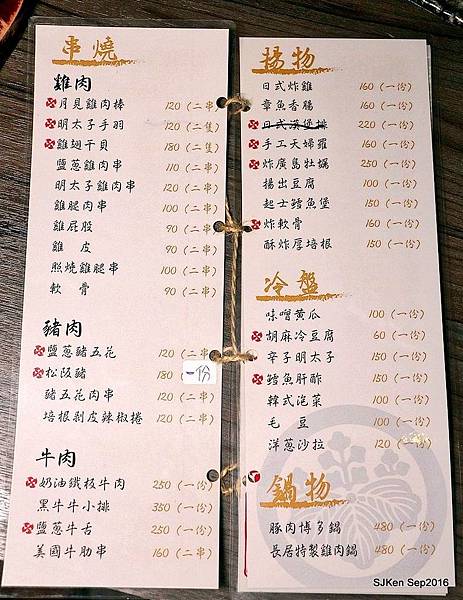 串燒
雞肉
月見雞肉棒 120 (二串
明太子手羽 120 (二隻
雞翅干貝 180 (二隻
鹽蔥雞肉串 110 (二串
明太子雞肉串 120 (二串
雞腿肉串 100 (二串
雞屁股 90 (二串
雞皮 90 (二串
照燒雞腿串 100 (二串
軟骨 90 (二串)
豬肉
鹽蔥豬五花 120 (二串
松阪豬 180 一份
豬五花肉串 120 (二串)
培根剝皮辣椒捲 120 (二串)
牛肉
奶油鐵板牛肉 250 (一份
黑牛牛小排 350 (一份)
鹽蔥牛舌 250 (一份)
美國牛肋串 160 (二串)
揚物
日式炸雞 160 (一份)
章魚香腸 160 (一份)
日式漢堡排 220 (一份)
手工天婦羅 160 (一份)
炸廣島牡蠣 250 (一份)
揚出豆腐 100 (一份)
起士鱈魚堡 150 (一份)
炸軟骨 160 (一份)
酥炸厚培根 150 (一份)
冷盤
味噌黃瓜 100 (一份)
胡麻冷豆腐 60 (一份)
辛子明太子 150 (一份)
鱈魚肝酢 150 (一份)
韓式泡菜 100 (一份)
毛豆 100 (一份)
洋蔥沙拉 120 (一份)
鍋物
豚肉博多鍋 480 (一份)
長居特製雞肉鍋 480 (一份)
SJKen Sep2016